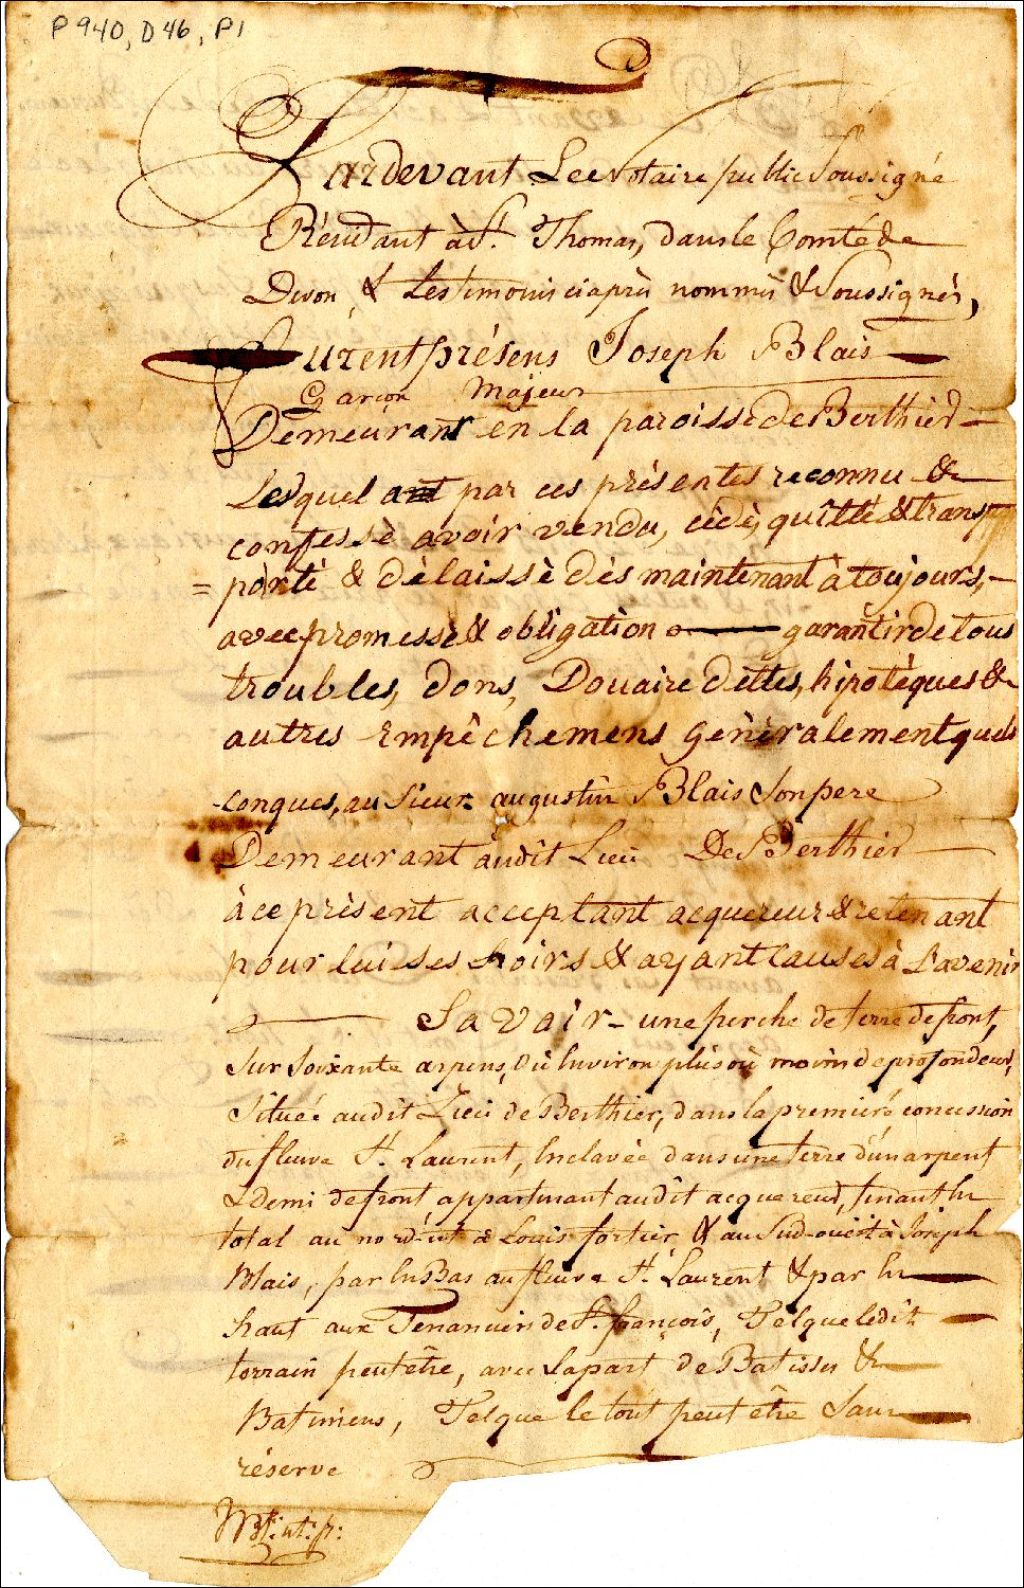 P 940, D 46, P1
Pardevant Le Notaire public Soussigné
Résidant à St. Thomas, dans le Comté de
Devon, & Les témoins ciaprès nommés & Soussignés,
Furent présens Joseph Blais
Garçon Majeur
Demeurant en la paroisse de Berthier
Lesquel ont par ces présentes reconnu &
confessé avoir vendu, cèdè, quitté & trans
= porté & dèlaissè dès maintenant à toujours,
avec promesse & obligation garantir de tous
troubles, dons, Douaire dettes, hipotèques &
autres Empêchemens gènèralement quels
conques, au Sieur augustin Blais Son pere
Demeurant audit Lieu De Berthier
à ce prèsent acceptant acquereur & retenant
pour lui ses hoirs & ayant causes à L'avenir
Savoir - une perche de terre de front,
Sur Soixante arpens, où Environ plus où moins de profondeur,
Située audit Lieu de Berthier, dans la premiere concession
du fleuve St. Laurent, Enclavèe dans une terre d'un arpent
& Demi de front appartenant audit acquereur, tenant En
total au nord-est à Louis fortier & au Sud-ouest à Joseph
Blais, par En Bas au fleuve St. Laurent & par En
haut aux Tenanciers de St. françois, Telque ledit
terrain peut être, avec Lapart de Batisses &
Batimens, Telque le tout peut être Sans
réserve